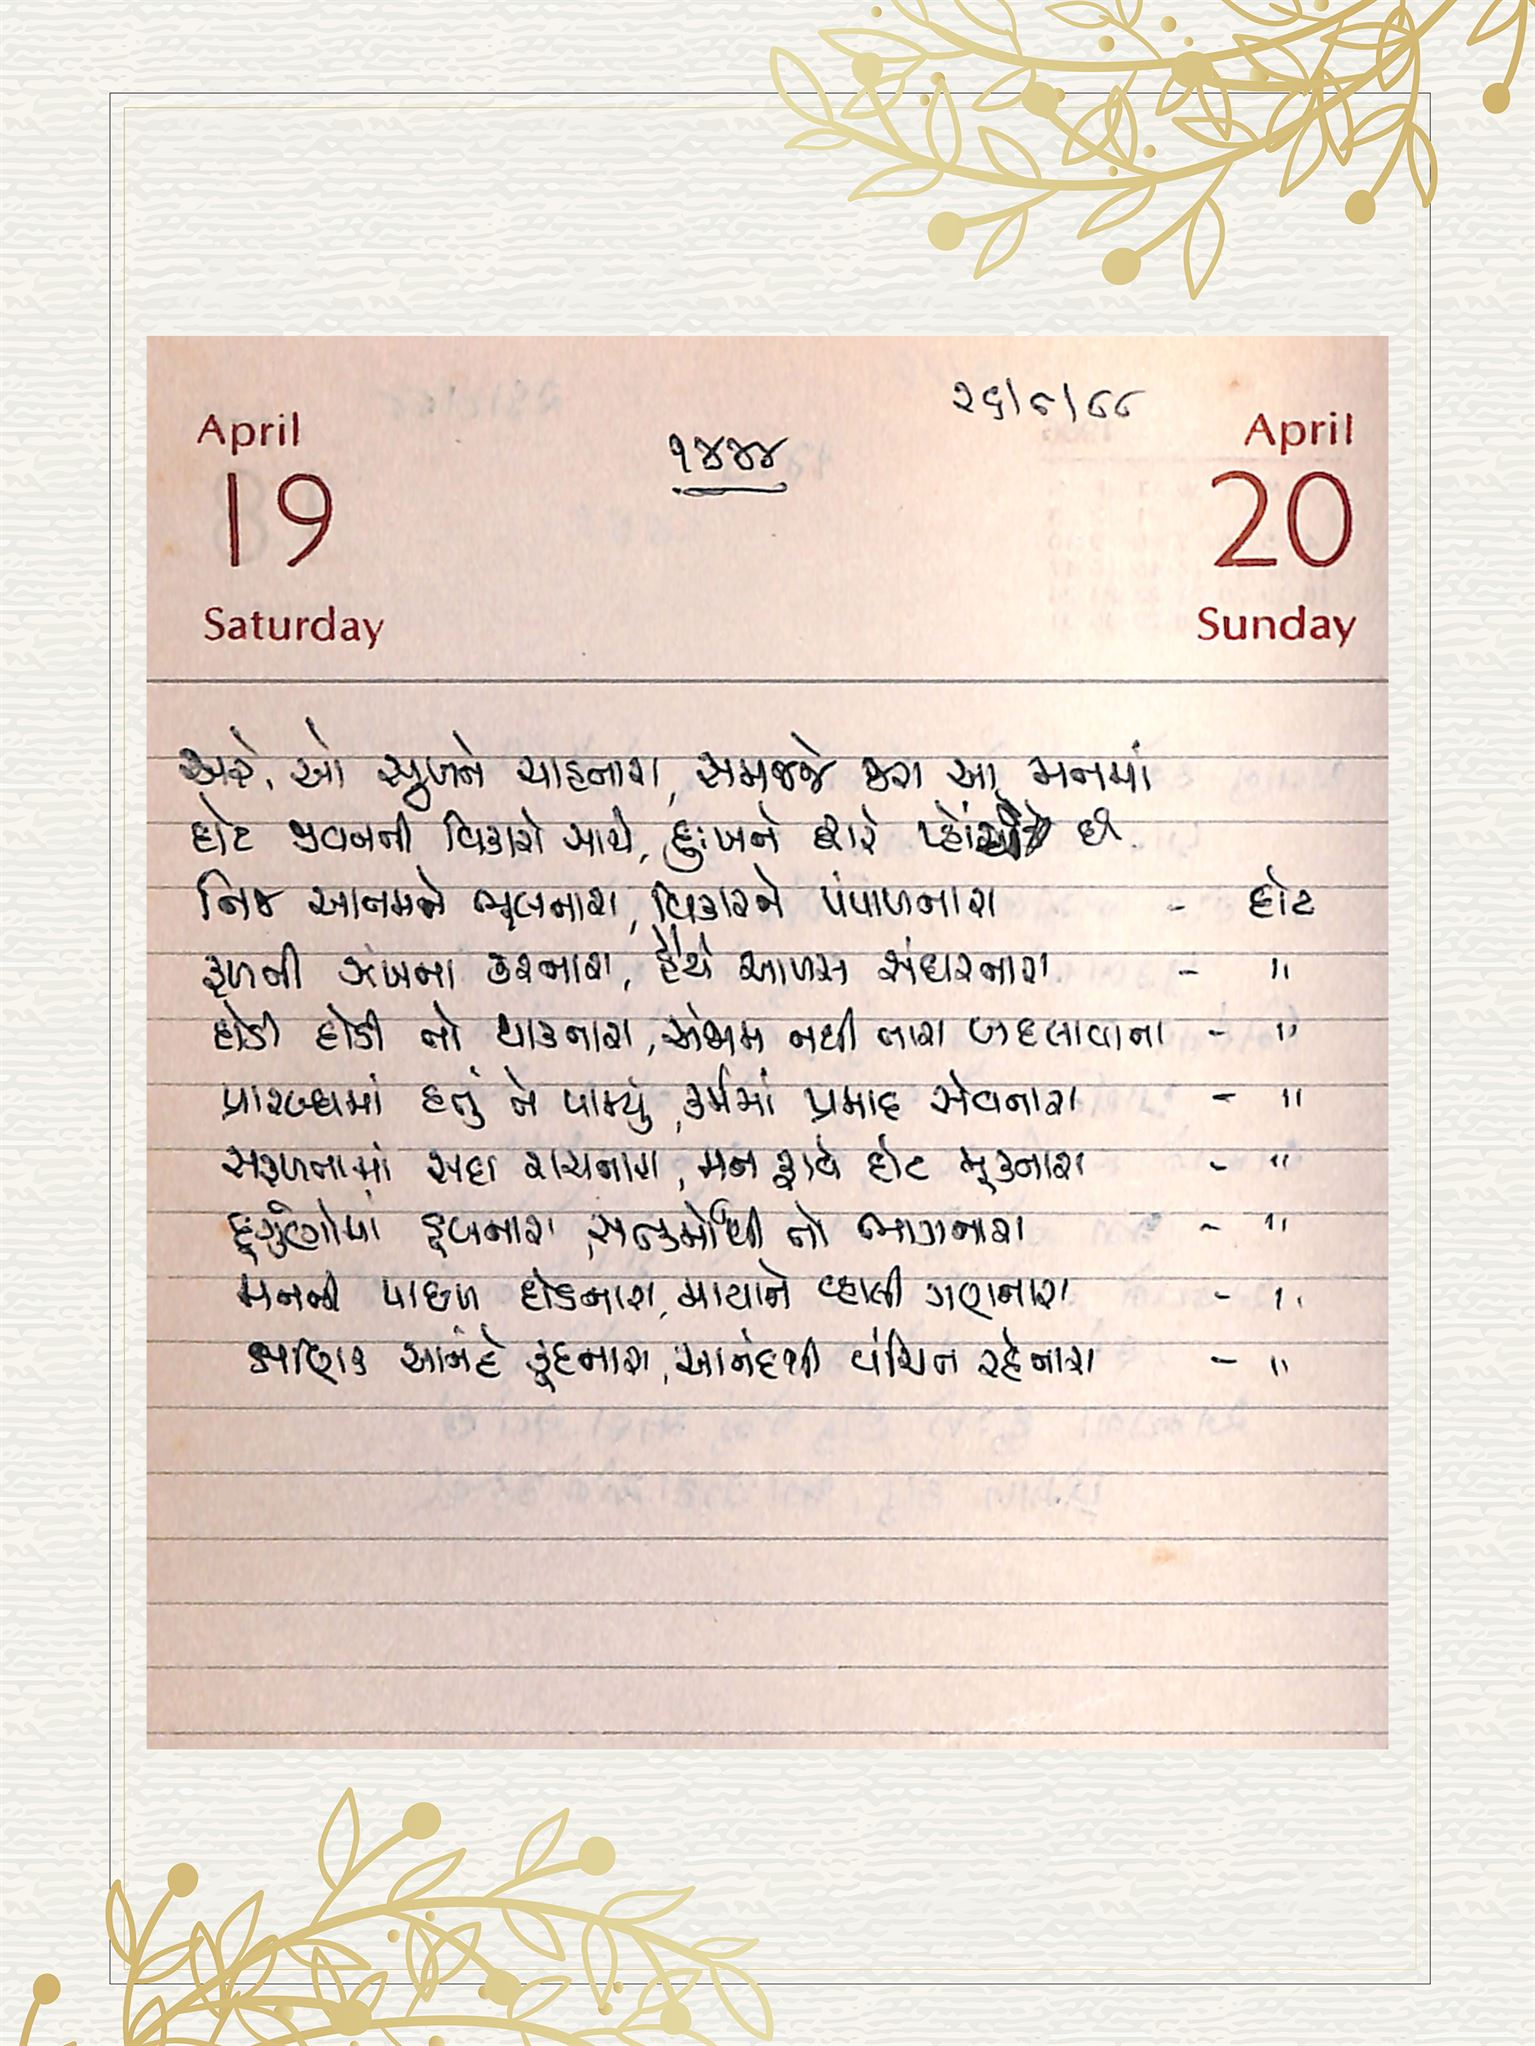 ૨૬/૮/૮૮
April
April
૧૪૪૪
19
20
Saturday
Sunday
અરે, ઓ સુખને ચાહનારા, સમજજે જરા આ મનમાં
દોટ જીવનની વિકારો સાથે, દુઃખને દ્વારે છે
નિજ આતમને ભૂલનારા, વિકારને પંપાળનારા - દોટ
ફળની ઝંખના કરનારા, હૈયે આળસ સંઘરનારા - "
દોડી દોડી તો થાકનારા, અંજામ નથી તારા બદલાવાના - "
પ્રારબ્ધમાં હતું તે પામ્યું, કર્મમાં પ્રમાદ સેવનારા - "
સફળતામાં સદા રાચનારા, મન ફાવે દોટ મૂકનારા - "
દુર્ગુણોમાં ડૂબનારા, સત્કર્મોથી તો ભાગનારા - "
મનની પાછળ દોડનારા, માયાને વ્હાલી ગણનારા - "
ક્ષણિક આનંદે કૂદનારા, આનંદથી વંચિત રહેનારા - "